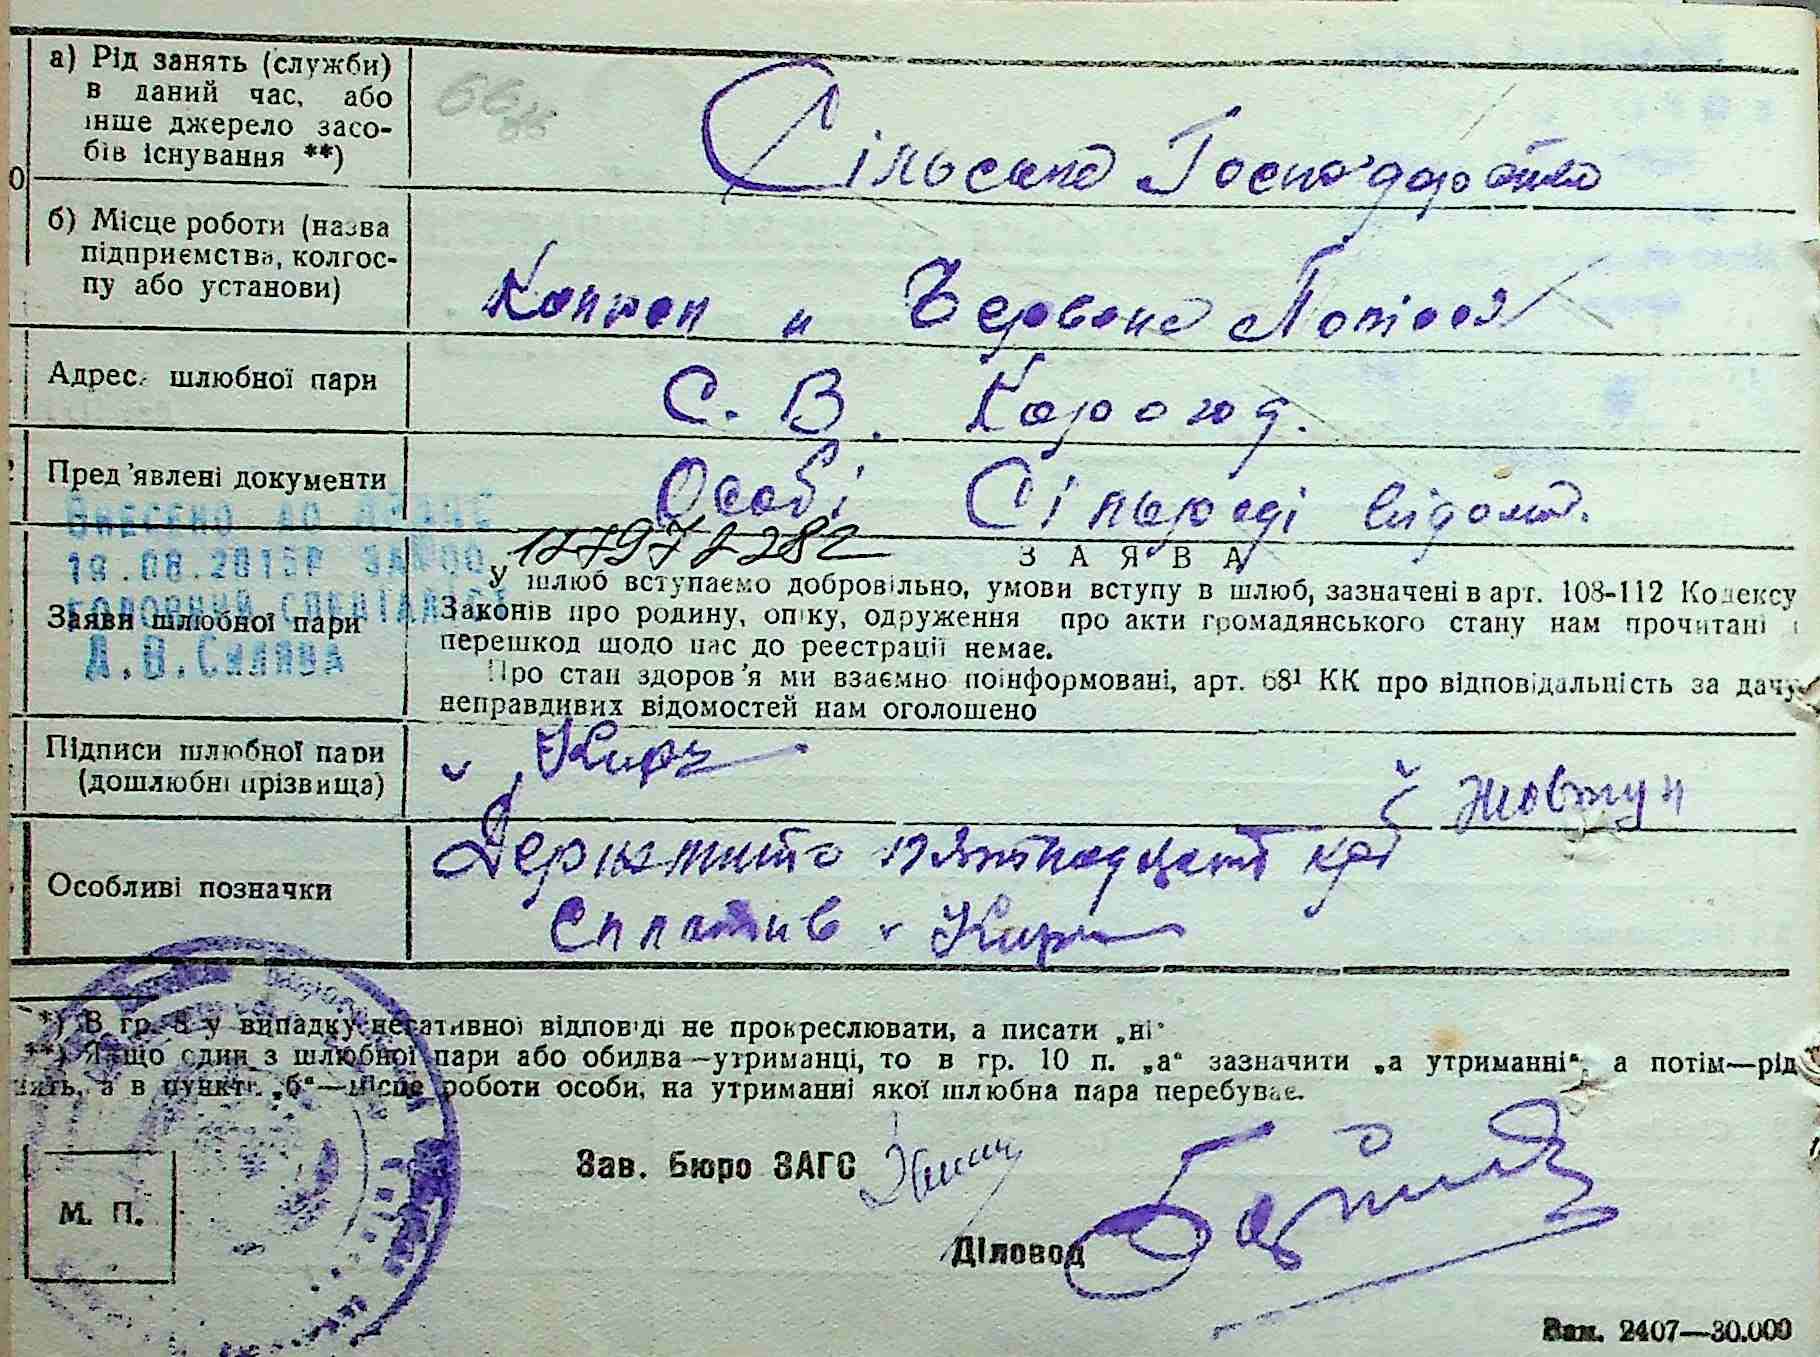 а) Рід занять (служби)
в даний час, або
інше джерело засо-
бів існування **)
Сільське Господарство
б) Місце роботи (назва
підприємства, колгос-
пу або установи)
Червоне Полісся
Адреса шлюбної пари
С. В. Корогод.
Пред'явлені документи
Особі Сільраді відомі.
Внесено до ДРАЦС
19.08.2015р
головний спеціаліст
З А Я В А
Заяви шлюбної пари
У шлюб вступаємо добровільно, умови вступу в шлюб, зазначені в арт. 108-112 Кодексу
Законів про родину, опіку, одруження про акти громадянського стану нам прочитані і
перешкод щодо нас до реєстрації немає.
Про стан здоров'я ми взаємно поінформовані, арт. 68¹ КК про відповідальність за дачу
неправдивих відомостей нам оголошено
Підписи шлюбної пари
(дошлюбні прізвища)
Жовтун
Особливі позначки
Держмито п'ятнадцять крб
Сплатив
*) В гр. 8 у випадку негативної відповіді не прокреслювати, а писати „ні“
**) Якщо один з шлюбної пари або обидва—утриманці, то в гр. 10 п. „а“ зазначити „а утриманні“, а потім—рід
нять, а в пункті „б“—місце роботи особи, на утриманні якої шлюбна пара перебуває.
Зав. бюро ЗАГС
М. П.
Діловод
Зам. 2407—30.000